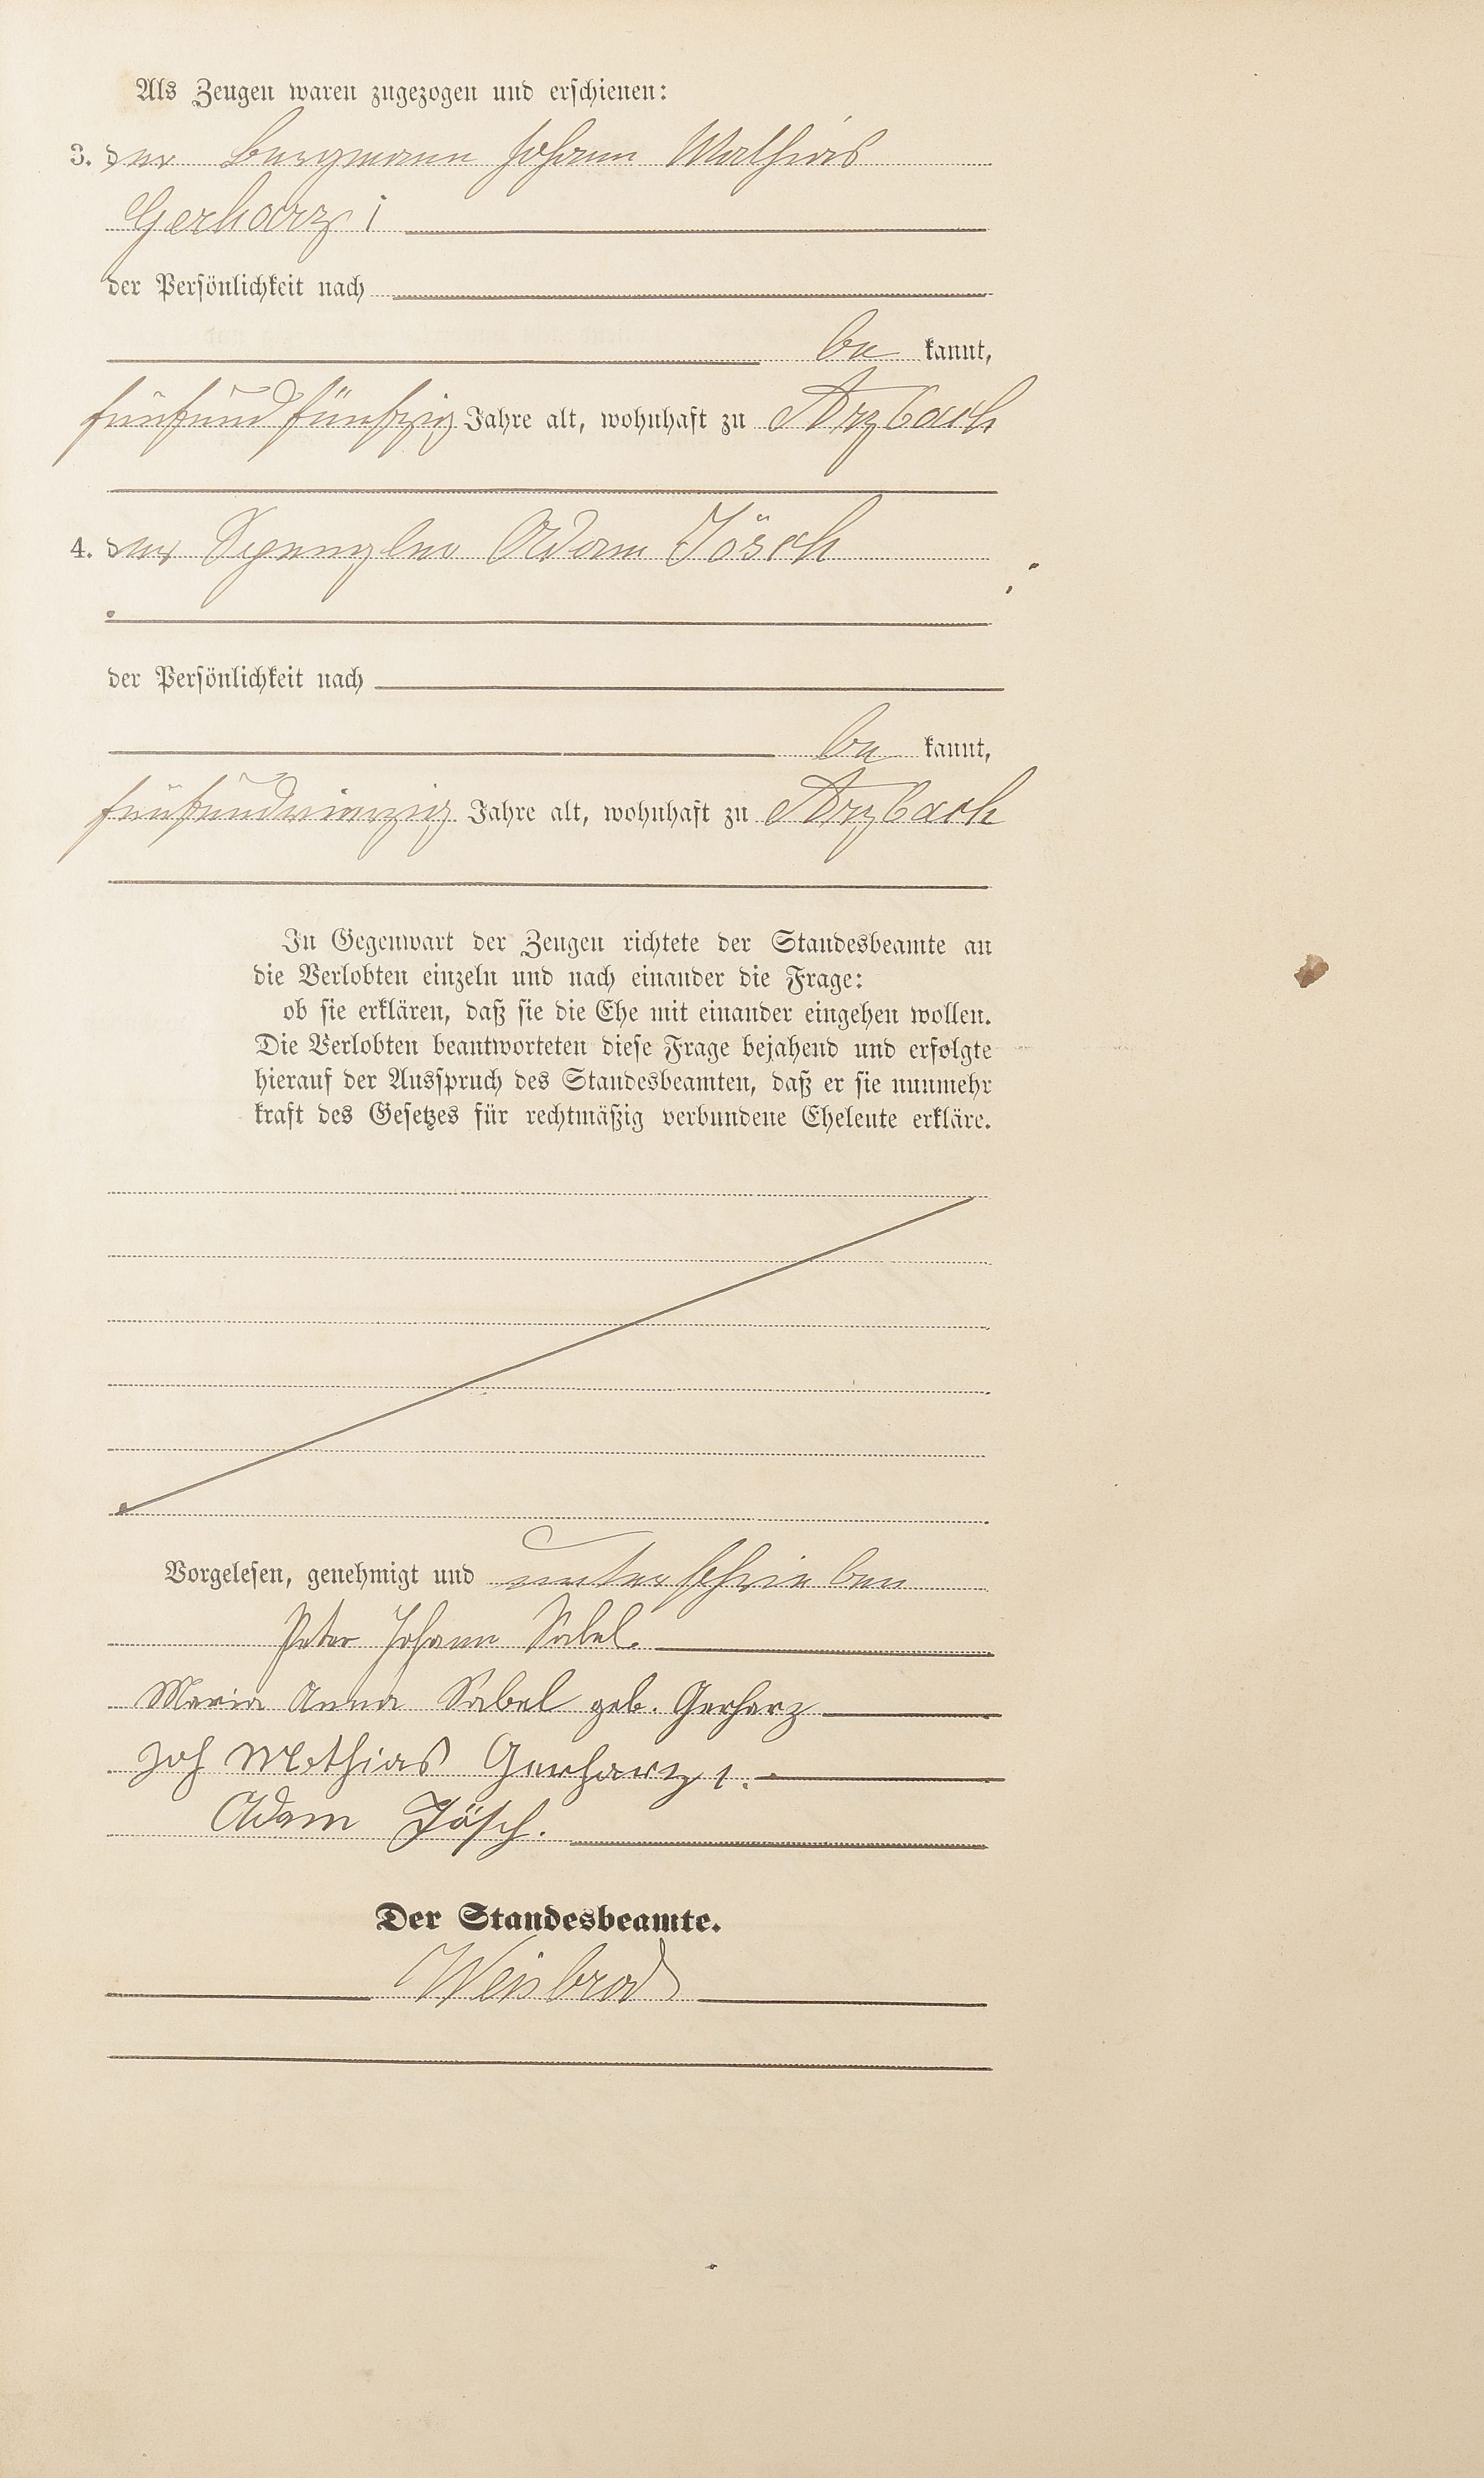 Als Zeugen waren zugezogen und erschienen:
3. der Bergmann Johann Mathias
Gerharz I
der Persönlichkeit nach
be kannt,
fünfundfünfzig Jahre alt, wohnhaft zu Arzbach
4. der Spengler Adam Jösch
der Persönlichkeit nach
be kannt,
fünfundvierzig Jahre alt, wohnhaft zu Arzbach
In Gegenwart der Zeugen richtete der Standesbeamte an
die Verlobten einzeln und nach einander die Frage:
ob sie erklären, daß sie die Ehe mit einander eingehen wollen.
Die Verlobten beantworteten diese Frage bejahend und erfolgte
hierauf der Ausspruch des Standesbeamten, daß er sie nunmehr
kraft des Gesetzes für rechtmäßig verbundene Eheleute erkläre.
Vorgelesen, genehmigt und unterschrieben
Peter Johann Sabel.
Maria Anna Sabel geb. Gerharz
Joh Mathias Gerharz 1.
Adam Jösch.
Der Standesbeamte.
Weisbrod